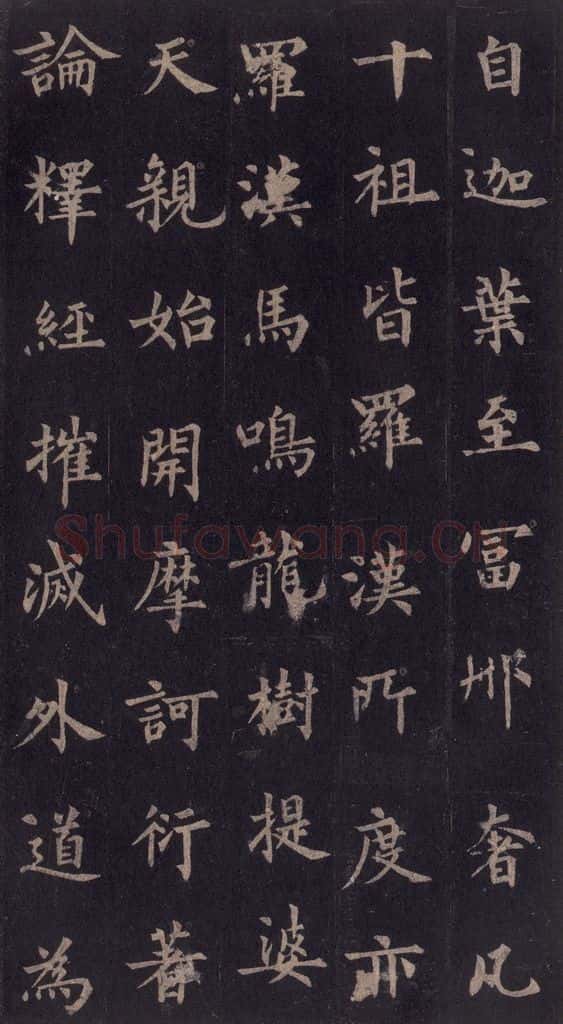 自迦葉至冨那奢凡
十祖皆羅漢所度亦
羅漢馬鳴龍樹提婆
天親始開摩訶衍著
論釋經摧滅外道為
Shufawang.cn